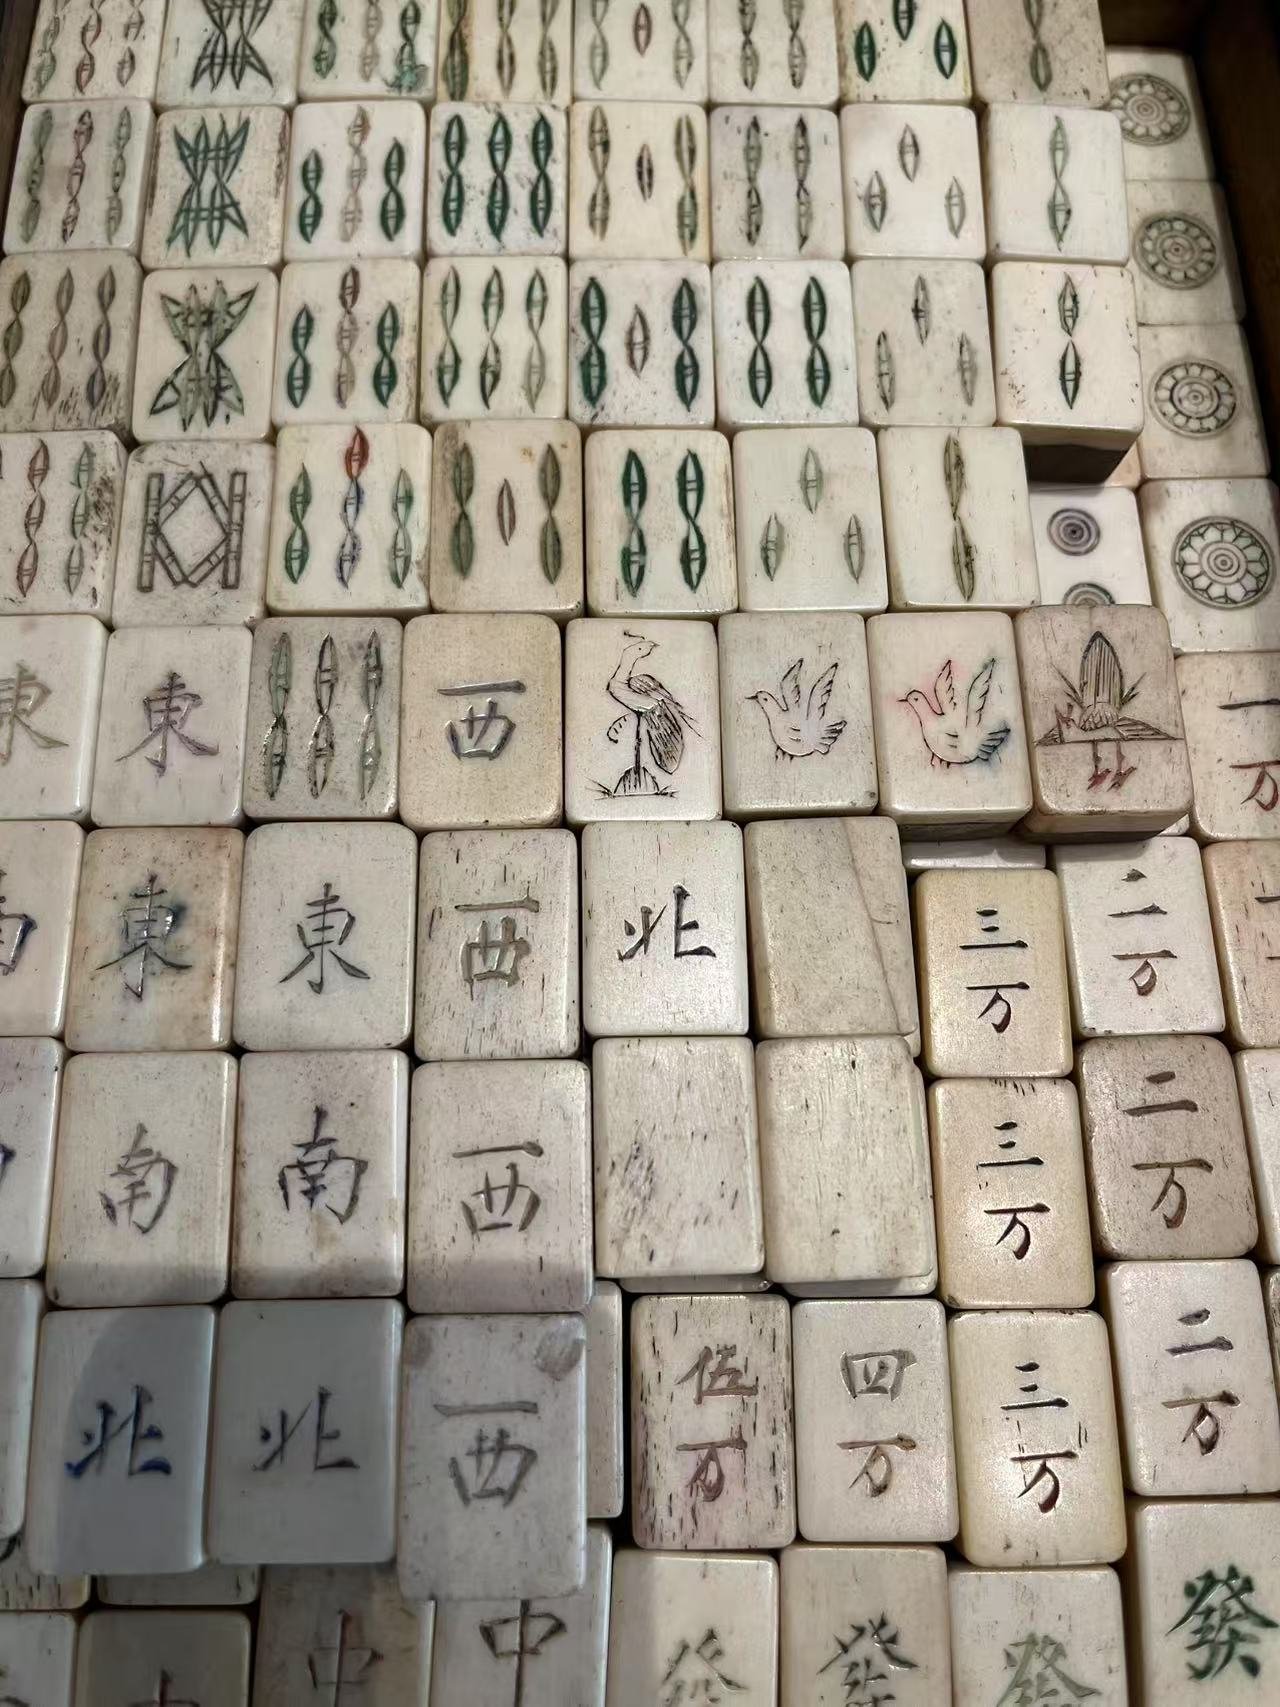 東 東 西
一万
東 東 西 北
三万 二万
南 南 西
三万 二万
北 北 西
伍万 四万 三万 二万
中 中 發 發 發 發